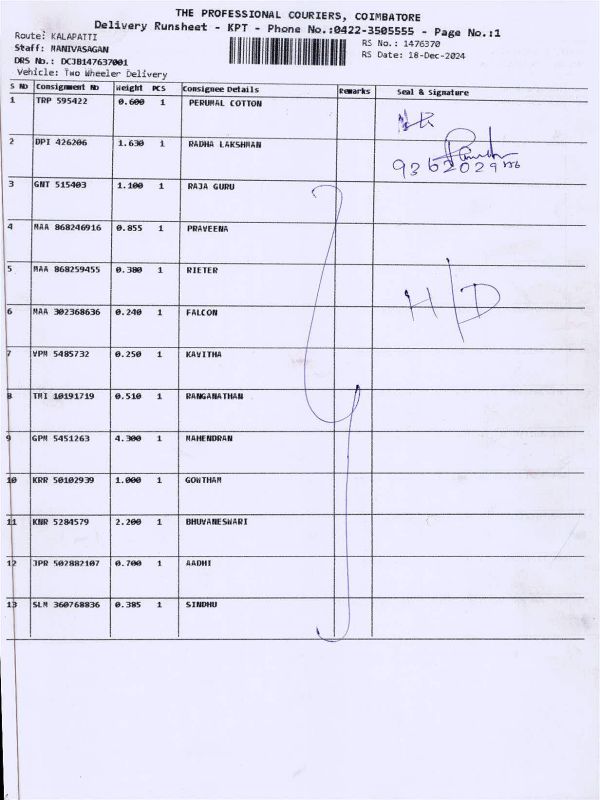 THE PROFESSIONAL COURIERS, COIMBATORE
Delivery Runsheet - KPT - Phone No.:0422-3505555 - Page No.:1
Route: KALAPATTI
Staff: MANIVASAGAN
DRS No.: DCJB147637001
Vehicle: Two Wheeler Delivery
RS No.: 1476370
RS Date: 18-Dec-2024
S No Consignment No Weight PCS Consignee Details Remarks Seal & signature
1 TRP 595422 0.600 1 PERUMAL COTTON
2 DPI 426206 1.630 1 RADHA LAKSHMAN
9362029156
3 GNT 515403 1.100 1 RAJA GURU
4 MAA 868246916 0.855 1 PRAVEENA
5 MAA 868259455 0.380 1 RIETER
H/D
6 MAA 302368636 0.240 1 FALCON
7 VPM 5485732 0.250 1 KAVITHA
8 TMI 10191719 0.510 1 RANGANATHAN
9 GPM 5451263 4.300 1 MAHENDRAN
10 KRR 50102939 1.000 1 GOWTHAM
11 KNR 5284579 2.200 1 BHUVANESWARI
12 JPR 502882107 0.700 1 AADHI
13 SLM 360768836 0.385 1 SINDHU